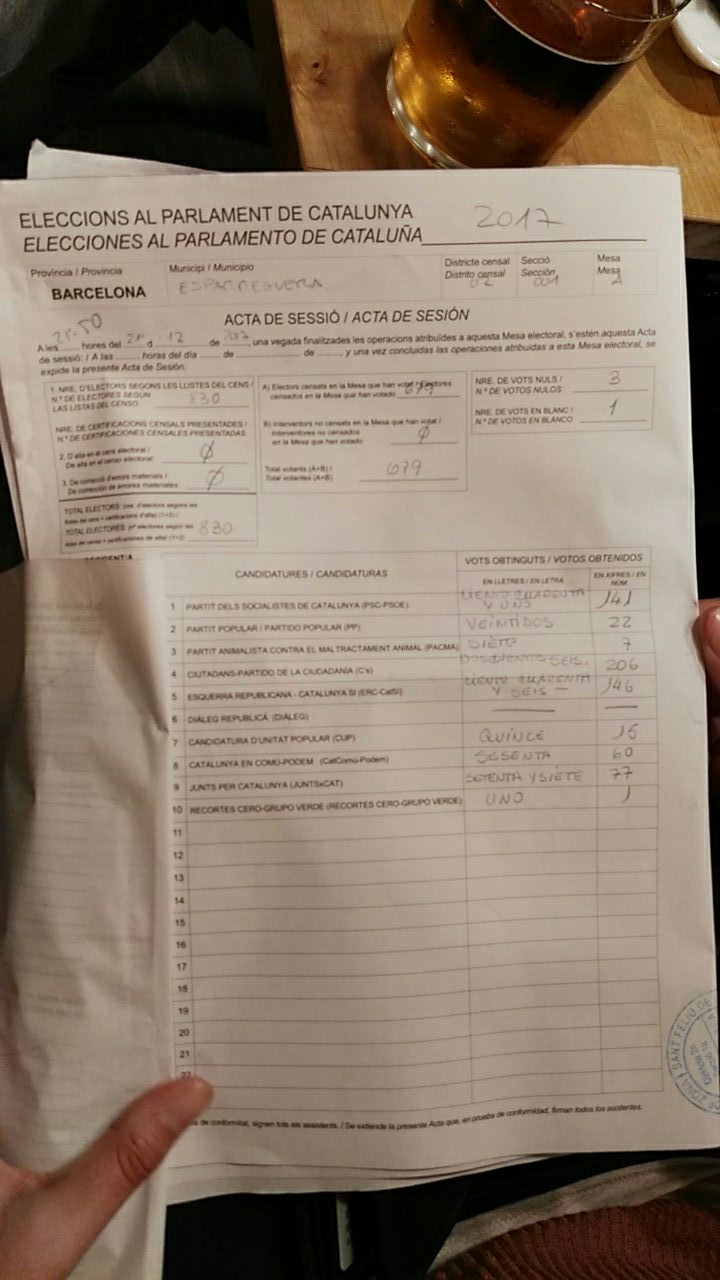 ELECCIONS AL PARLAMENT DE CATALUNYA 2017
ELECCIONES AL PARLAMENTO DE CATALUÑA
Provincia / Provincia Municipi / Municipio Districte censal Secció Mesa
BARCELONA ESPARREGUERA Distrito censal 02 Sección 001 Mesa A
ACTA DE SESSIÓ / ACTA DE SESIÓN
A les 21:50 hores del 21 d 12 de 2017, una vegada finalitzades les operacions atribuïdes a aquesta Mesa electoral, s'estén aquesta Acta
de sessió: / A las horas del día de de , y una vez concluidas las operaciones atribuidas a esta Mesa electoral, se
expide la presente Acta de Sesión:
1. NRE. D'ELECTORS SEGONS LES LLISTES DEL CENS /
N.º DE ELECTORES SEGÚN
LAS LISTAS DEL CENSO 830
NRE. DE CERTIFICACIONS CENSALS PRESENTADES /
N.º DE CERTIFICACIONES CENSALES PRESENTADAS
2. D'alta en el cens electoral /
De alta en el censo electoral: Ø
3. De correcció d'errors materials /
De corrección de errores materiales: Ø
TOTAL ELECTORS:
TOTAL ELECTORES: 830
A) Electors censats en la Mesa que han votat / Electores
censados en la Mesa que han votado 679
B) Interventors no censats en la Mesa que han votat /
Interventores no censados
en la Mesa que han votado Ø
Total votants (A+B) /
Total votantes (A+B) 679
NRE. DE VOTS NULS /
N.º DE VOTOS NULOS 3
NRE. DE VOTS EN BLANC /
N.º DE VOTOS EN BLANCO 1
CANDIDATURES / CANDIDATURAS VOTS OBTINGUTS / VOTOS OBTENIDOS
EN LLETRES / EN LETRA EN XIFRES / EN NÚM.
1 PARTIT DELS SOCIALISTES DE CATALUNYA (PSC-PSOE) CIENTO CUARENTA Y UNO 141
2 PARTIT POPULAR / PARTIDO POPULAR (PP) VEINTIDOS 22
3 PARTIT ANIMALISTA CONTRA EL MALTRACTAMENT ANIMAL (PACMA) SIETE 7
4 CIUTADANS-PARTIDO DE LA CIUDADANÍA (C's) DOSCIENTOS SEIS. 206
5 ESQUERRA REPUBLICANA - CATALUNYA SÍ (ERC-CatSí) CIENTO CUARENTA Y SEIS — 146
6 DIÀLEG REPUBLICÀ (DIÀLEG) — —
7 CANDIDATURA D'UNITAT POPULAR (CUP) QUINCE 15
8 CATALUNYA EN COMÚ-PODEM (CatComú-Podem) SESENTA 60
9 JUNTS PER CATALUNYA (JUNTSxCAT) SETENTA Y SIETE 77
10 RECORTES CERO-GRUPO VERDE (RECORTES CERO-GRUPO VERDE) UNO 1
11
12
13
14
15
16
17
18
19
20
21
22
de conformitat, signen tots els assistents. / Se extiende la presente Acta que, en prueba de conformidad, firman todos los asistentes.
DE ZONA SANT FELIU DE